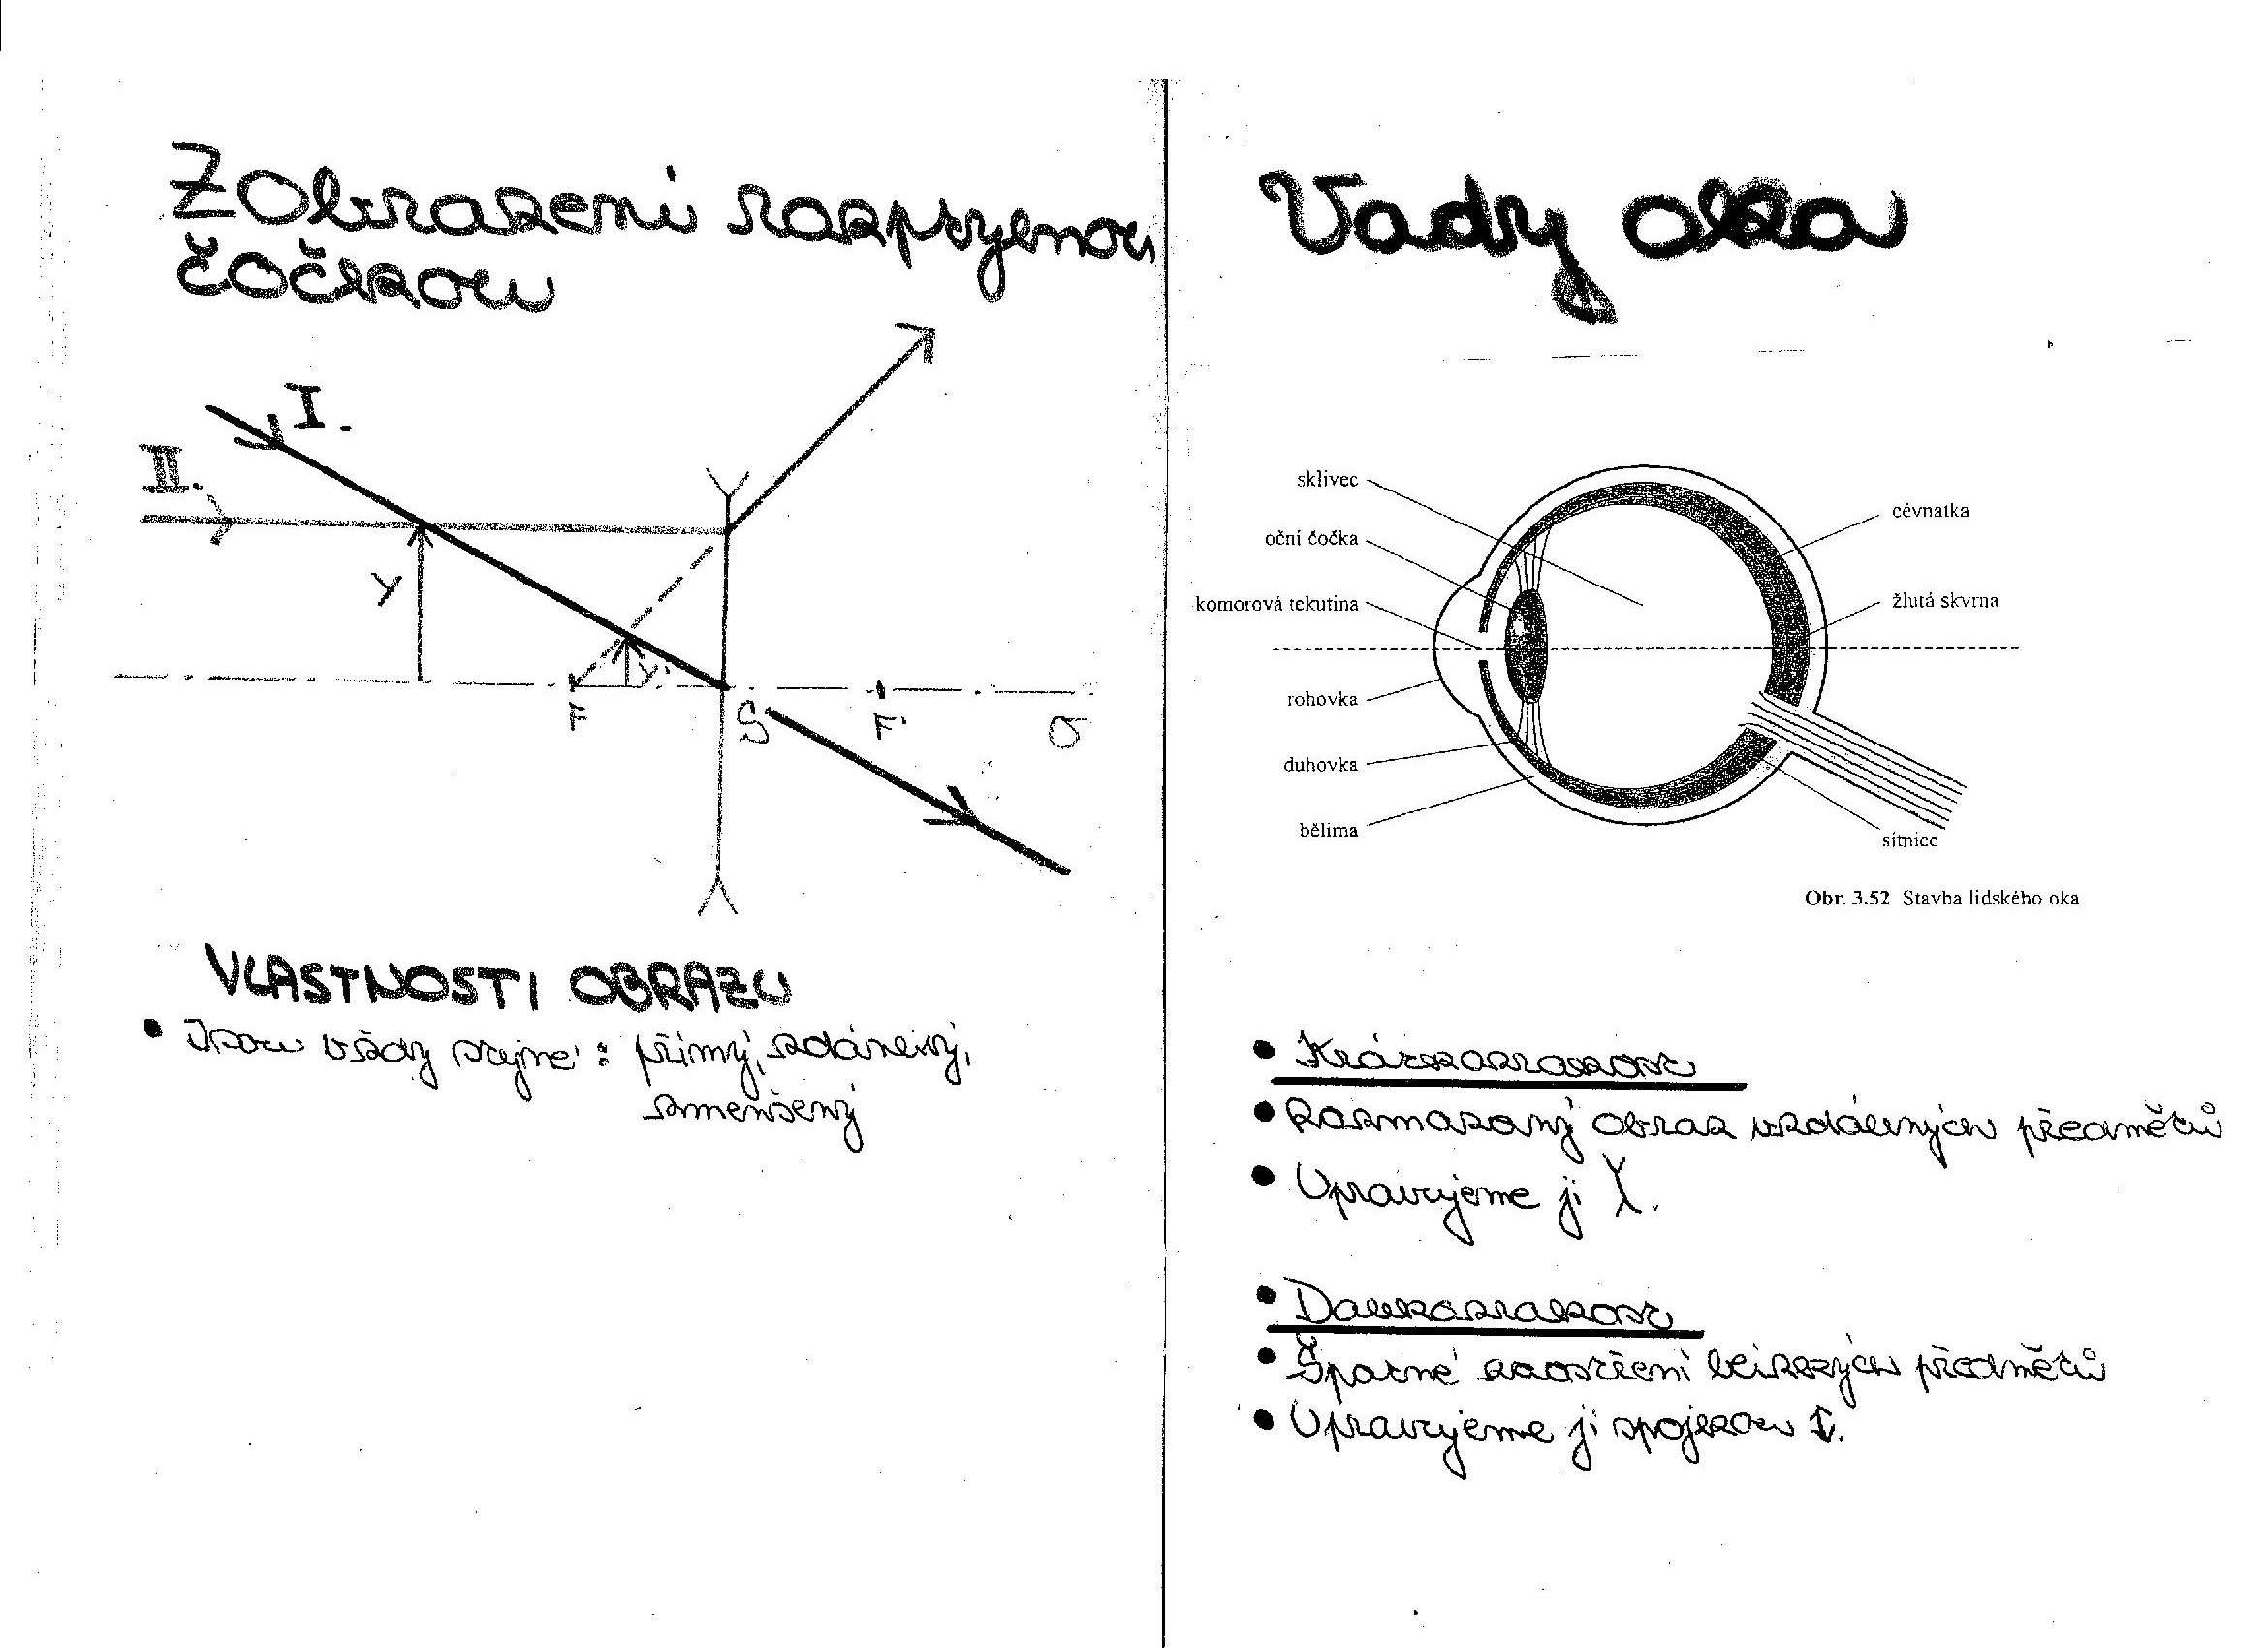 Zobrazení rozptylnou
čočkou
I.
II.
y
y'
F
S
F'
o
VLASTNOSTI OBRAZU
• Jsou vždy stejné: přímý, zdánlivý,
zmenšený
Vady oka
sklivec
oční čočka
komorová tekutina
rohovka
duhovka
bělima
cévnatka
žlutá skvrna
sítnice
Obr. 3.52 Stavba lidského oka
• Krátkozrakost
• Rozmazaný obraz vzdálených předmětů
• Upravujeme ji
• Dalekozrakost
• Špatné zaostření blízkých předmětů
• Upravujeme ji spojkou